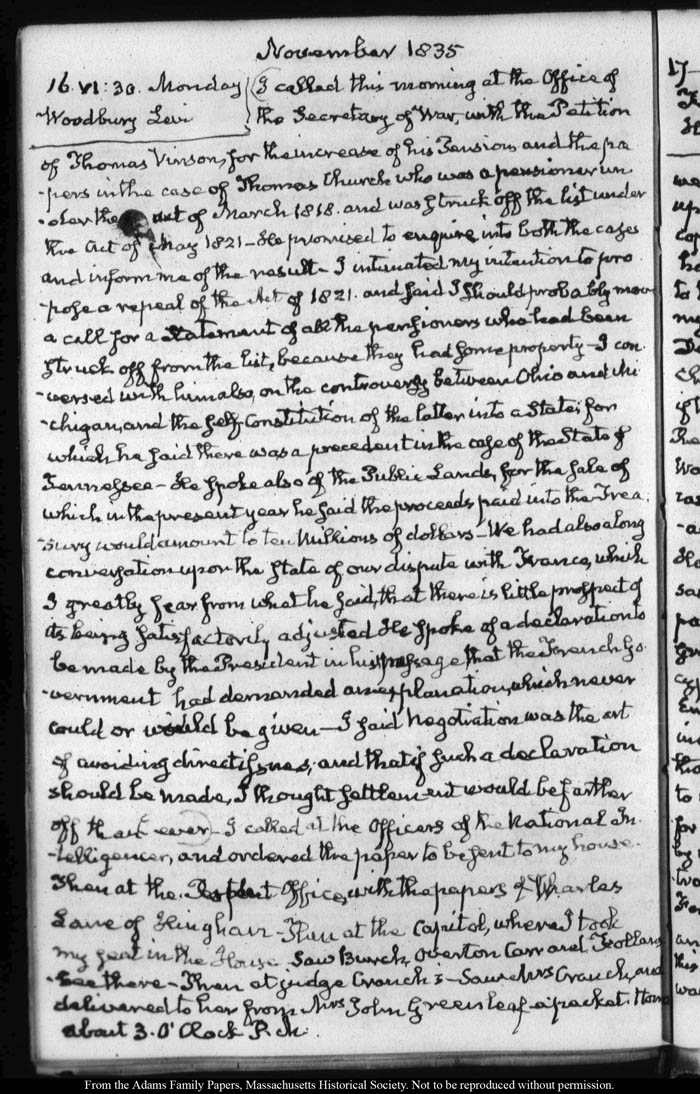 November 1835
16. VI:30. Monday
Woodbury Levi
I called this morning at the Office of
the Secretary of War, with the Petition
of Thomas Vinson, for the increase of his Pension, and the pa
-pers in the case of Thomas Church who was a pensioner un
-der the Act of March 1818. and was struck off the list under
the Act of May 1821 - He promised to enquire into both the cases
and inform me of the result - I intimated my intention to pro
-pose a repeal of the Act of 1821. and said I should probably move
a call for a Statement of all the pensioners who had been
struck off from the list, because they had some property - I con
-versed with him also, on the controversy between Ohio and Mi
-chigan, and the self-Constitution of the latter into a State; for
which he said there was a precedent in the case of the State of
Tennessee - He spoke also of the Public Lands, for the sale of
which in the present year he said the proceeds paid into the Trea
-sury would amount to ten Millions of dollars - We had also a long
conversation upon the state of our dispute with France, which
I greatly fear from what he said, that there is little prospect of
its being satisfactorily adjusted He spoke of a declaration to
be made by the President in his message that the French Go
-vernment had demanded an explanation, which never
could or would be given - I said Negotiation was the art
of avoiding direct issues; and that if such a declaration
should be made, I thought settlement would be farther
off than ever - I called at the Officers of the National In
-telligencer, and ordered the paper to be sent to my house.
Then at the Office, with the papers of Charles
Lane of Hingham - Then at the Capitol, where I took
my seat in the House Saw Burch, Overton Carr and
there - Then at judge Cranch's - Saw Mrs Cranch, and
delivered to her from Mrs John Greenleaf a packet. Home
about 3. O'Clock P.M.
17